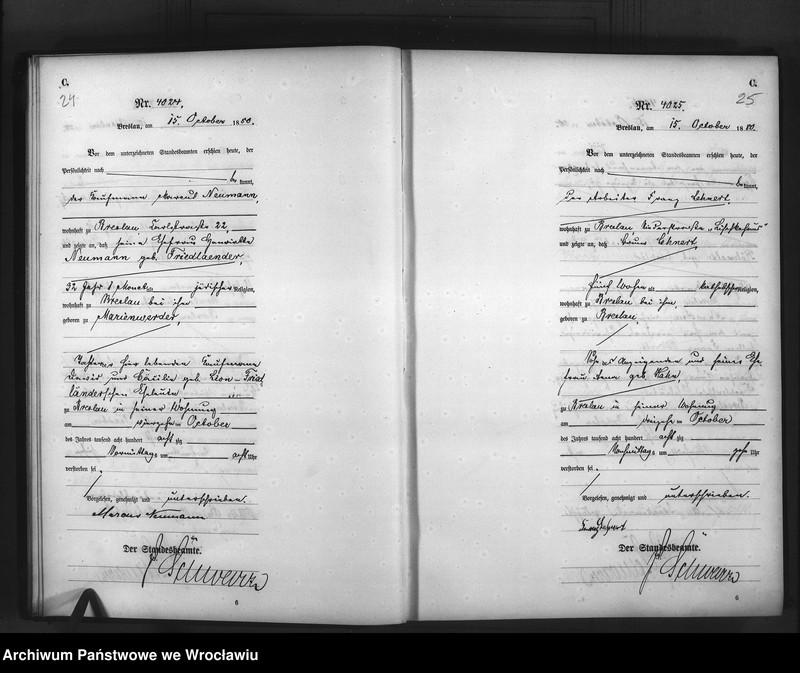 C.
24
Nr. 4024.
Breslau, am 15. October 1880.
Vor dem unterzeichneten Standesbeamten erschien heute, der
Persönlichkeit nach
be kannt,
der Kaufmann Marcus Neumann,
wohnhaft zu Breslau, Carlsstraße 22,
und zeigte an, daß seine Ehefrau Henriette
Neumann geb. Friedlaender,
32 Jahr 1 Monat alt jüdischer Religion,
wohnhaft zu Breslau bei ihm
geboren zu Marienwerder,
Tochter hier lebenden Kaufmann
David und Cäcilie geb. Leon - Fried
länderschen Eheleute
zu Breslau in seiner Wohnung
am October
des Jahres tausend acht hundert acht zig
Vormittags um acht Uhr
verstorben sei.
Vorgelesen, genehmigt und unterschrieben.
Marcus Neumann
Der Standesbeamte.
6
C.
25
Nr. 4025.
Breslau, am 15. October 1880.
Vor dem unterzeichneten Standesbeamten erschien heute, der
Persönlichkeit nach
be kannt,
Der Arbeiter Franz Lehnert,
wohnhaft zu Breslau,
und zeigte an, daß Lehnert,
fünf Wochen alt katholischer Religion,
wohnhaft zu Breslau bei ihm,
geboren zu Breslau,
des Anzeigenden und seiner Ehe
frau Anna geb. Hahn,
zu Breslau in seiner Wohnung
am October
des Jahres tausend acht hundert acht zig
Nachmittags um Uhr
verstorben sei.
Vorgelesen, genehmigt und unterschrieben.
Der Standesbeamte.
6
Archiwum Państwowe we Wrocławiu